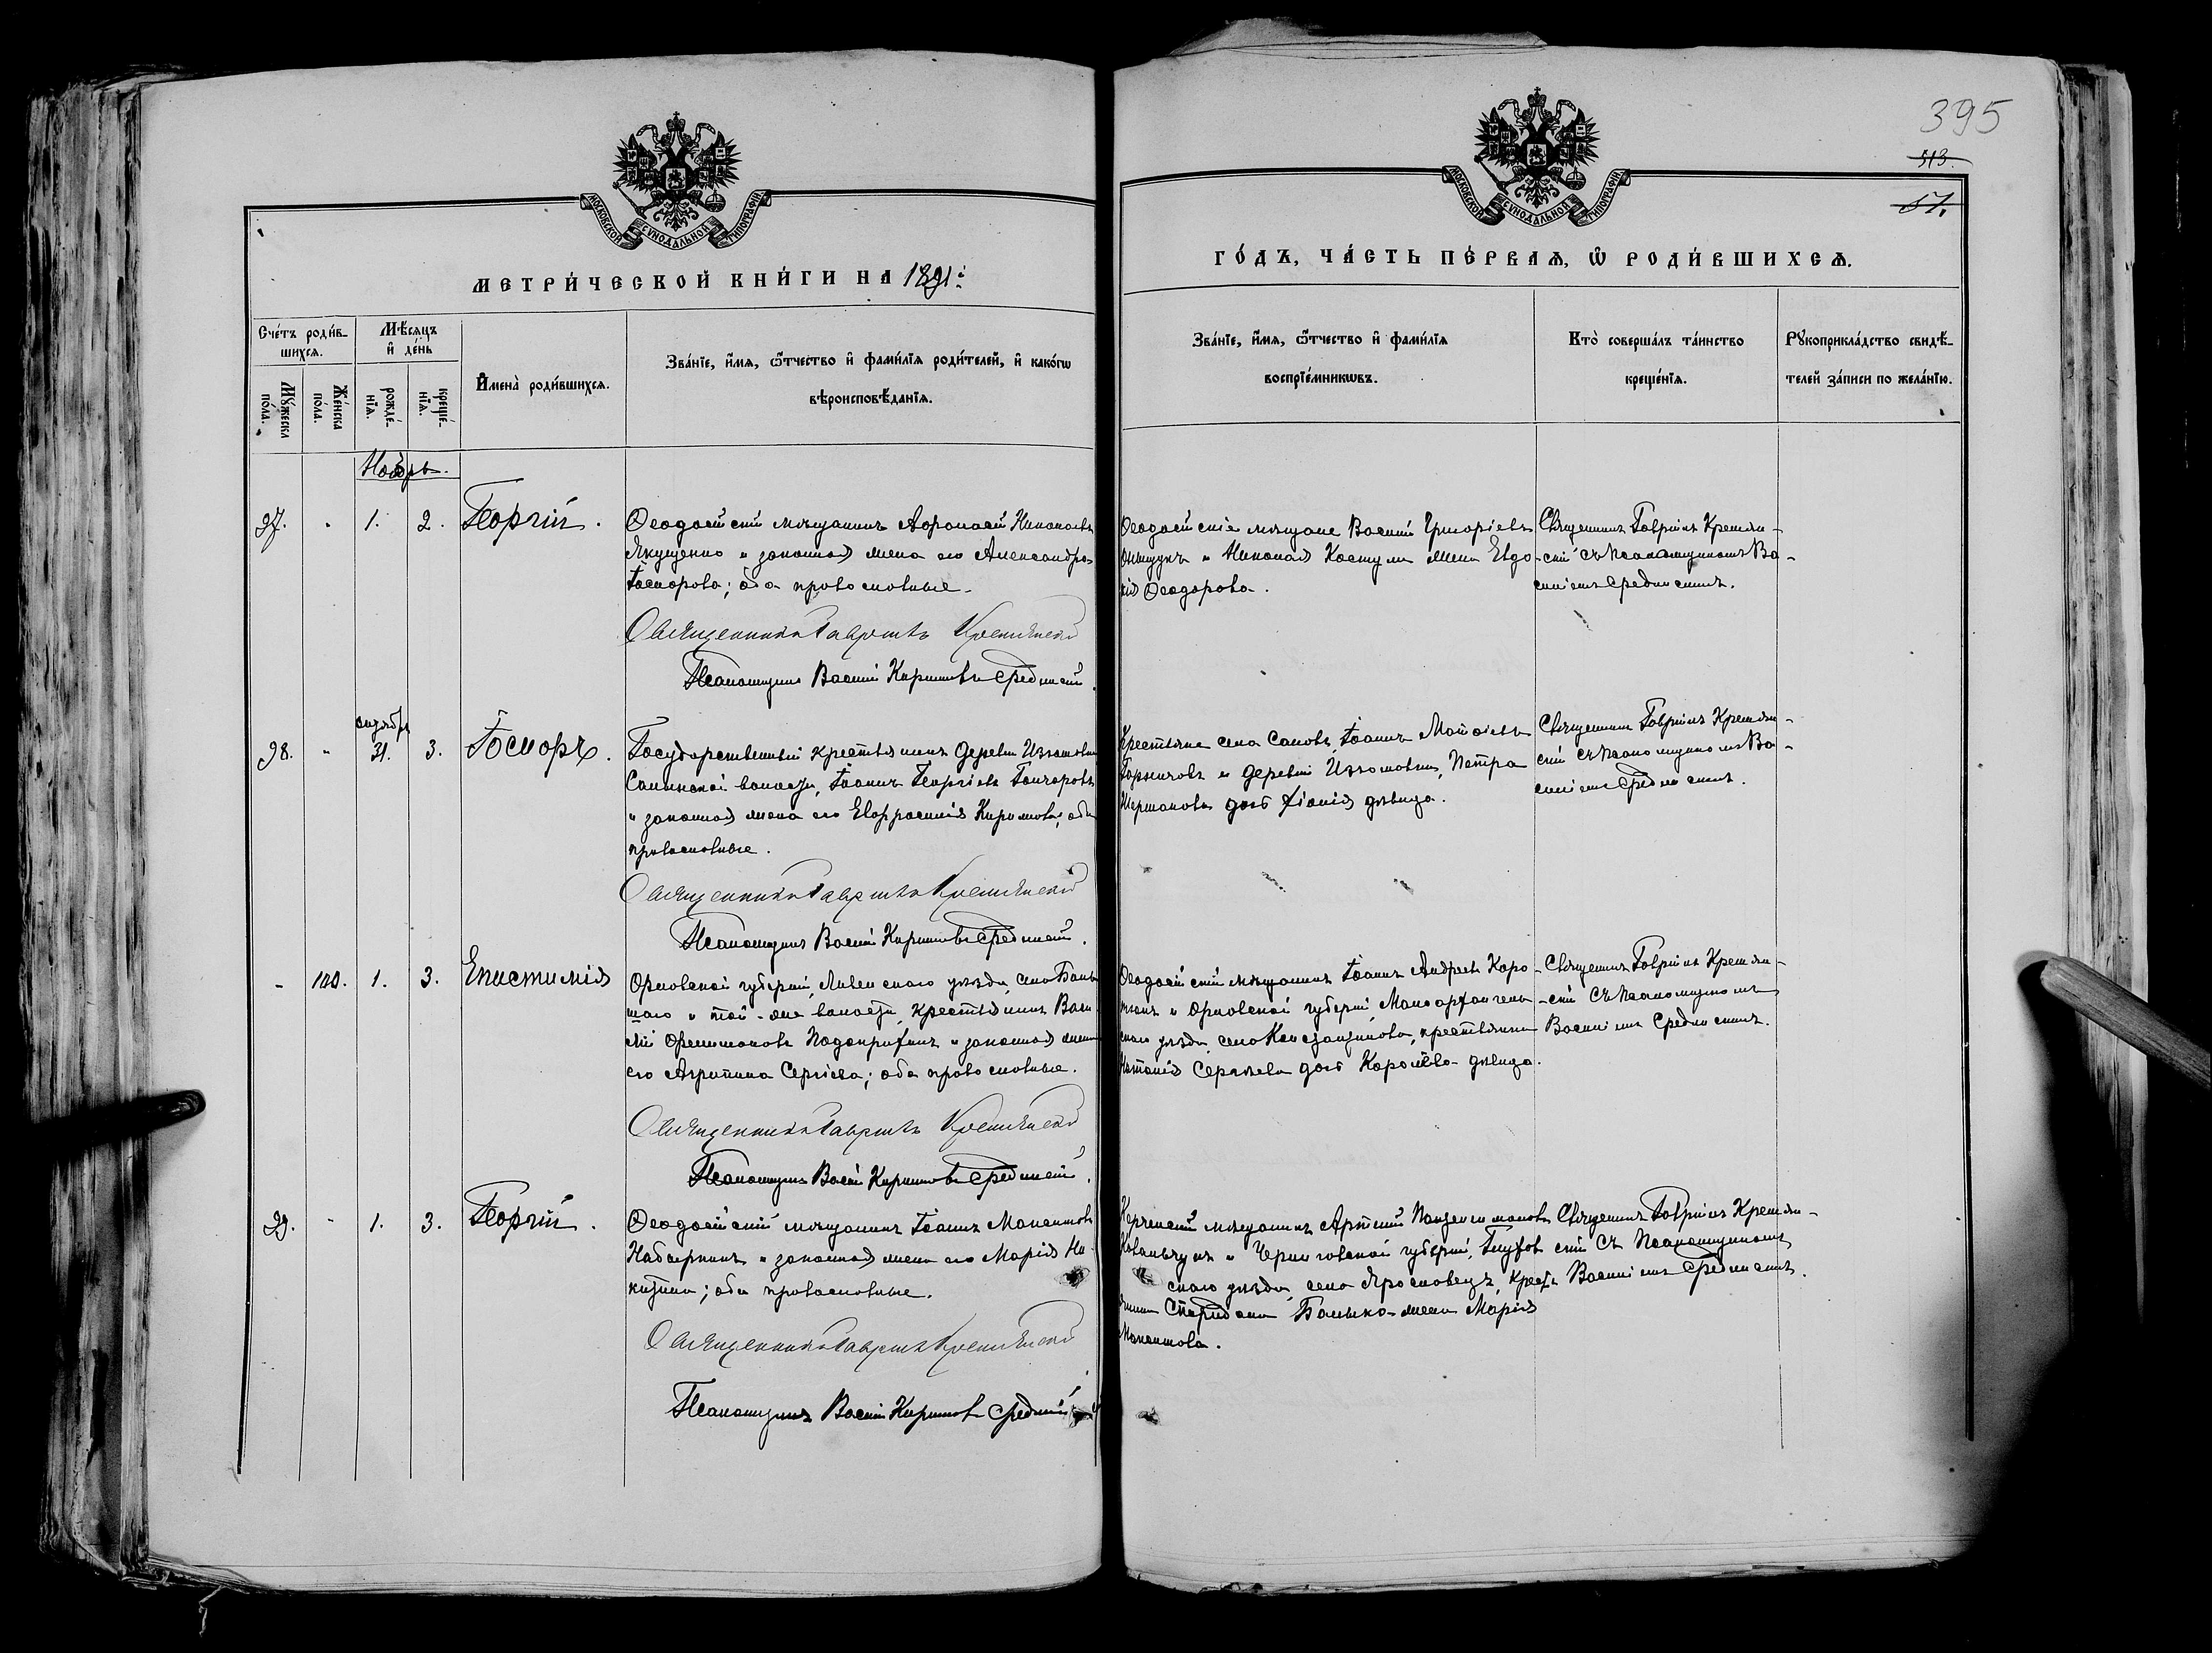 395
513.
57.
МОСКОВСКОЙ СѴНОДАЛЬНОЙ ТИПОГРАФІИ
МОСКОВСКОЙ СѴНОДАЛЬНОЙ ТИПОГРАФІИ
МЕТРИ́ЧЕСКОЙ КНИ́ГИ НА 1891:
ГО́ДЪ, ЧА́СТЬ ПЕ́РВАѦ, Ѡ҆ РОДИ́ВШИХСѦ.
Сче́тъ роди́в-
шихсѧ.
Мꙋ́жеска по́ла.
Же́нска по́ла.
Мѣ́сѧцъ и҆ де́нь
рожде́-нїѧ.
креще́-нїѧ.
И҆мена̀ роди́вшихсѧ.
Зва́нїе, и҆́мѧ, ѻ҆́тчество и҆ фами́лїѧ роди́телей, и҆ како́гѡ
вѣроисповѣ́данїѧ.
Зва́нїе, и҆́мѧ, ѻ҆́тчество и҆ фами́лїѧ
воспрїе́мникѡвъ.
Кто̀ соверша́лъ та́инство
креще́нїѧ.
Рꙋкоприкла́дство свидѣ́-
телей за́писи по жела́нїю.
Ноябрь.
97. " 1. 2. Георгій.
Ѳеодосійскій мѣщанинъ Аѳанасій Николаевъ
Якущенко и законная жена его Александра
Госиорова; оба православные.
Священникъ Гавріилъ Кремянскій
Псаломщикъ Василій Кирилловъ Срединскій.
Ѳеодосійскіе мѣщане Василій Григорьевъ
и Николая Костум жена Евдо-
кія Ѳеодорова.
Священникъ Гавріилъ Кремян-
скій съ псаломщикомъ Ва-
силіемъ Срединскимъ.
октября
98. " 31. 3.
Государственный крестьянинъ деревни Изюмовки
Салынской волости, Іоаннъ Георгіевъ Гончаровъ
и законная жена его Евфросинія Кириллова; оба
православные.
Священникъ Гавріилъ Кремянскій
Псаломщикъ Василій Кирилловъ Срединскій.
Крестьяне села Саловъ, Іоаннъ Матѳіевъ
и деревни Изюмовки, Петра
дочь дѣвица.
Священникъ Гавріилъ Кремян-
скій съ псаломщикомъ Ва-
силіемъ Срединскимъ.
- 100. 1. 3. Епистимія
Орловской губерніи, Ливенскаго уѣзда, села Боль-
шаго и той-же волости, крестьянинъ Васи-
лій Подоприхинъ и законная жена
его Агрипина Сергіева; оба православные.
Священникъ Гавріилъ Кремянскій
Псаломщикъ Василій Кирилловъ Срединскій.
Ѳеодосійскій мѣщанинъ Іоаннъ Андреевъ Коро-
и Орловской губерніи, Малоархангель-
скаго уѣзда, села Константинова, крестьянина
Сергѣева дочь дѣвица.
Священникъ Гавріилъ Кремян-
скій съ псаломщикомъ
Василіемъ Срединскимъ.
99. " 1. 3. Георгій.
Ѳеодосійскій мѣщанинъ Іоаннъ Максимовъ
Набаркинъ и законная жена его Марія Ни-
китина; оба православные.
Священникъ Гавріилъ Кремянскій
Псаломщикъ Василій Кирилловъ Срединскій
Керченскій мѣщанинъ Артемій Пантелеимоновъ
Ковальчукъ и Черниговской губерніи, Глухов-
скаго уѣзда, села Ярославецъ, кресть-
янина Спиридона Болыко-жена Марія
Максимова.
Священникъ Гавріилъ Кремян-
скій съ псаломщикомъ
Василіемъ Срединскимъ.